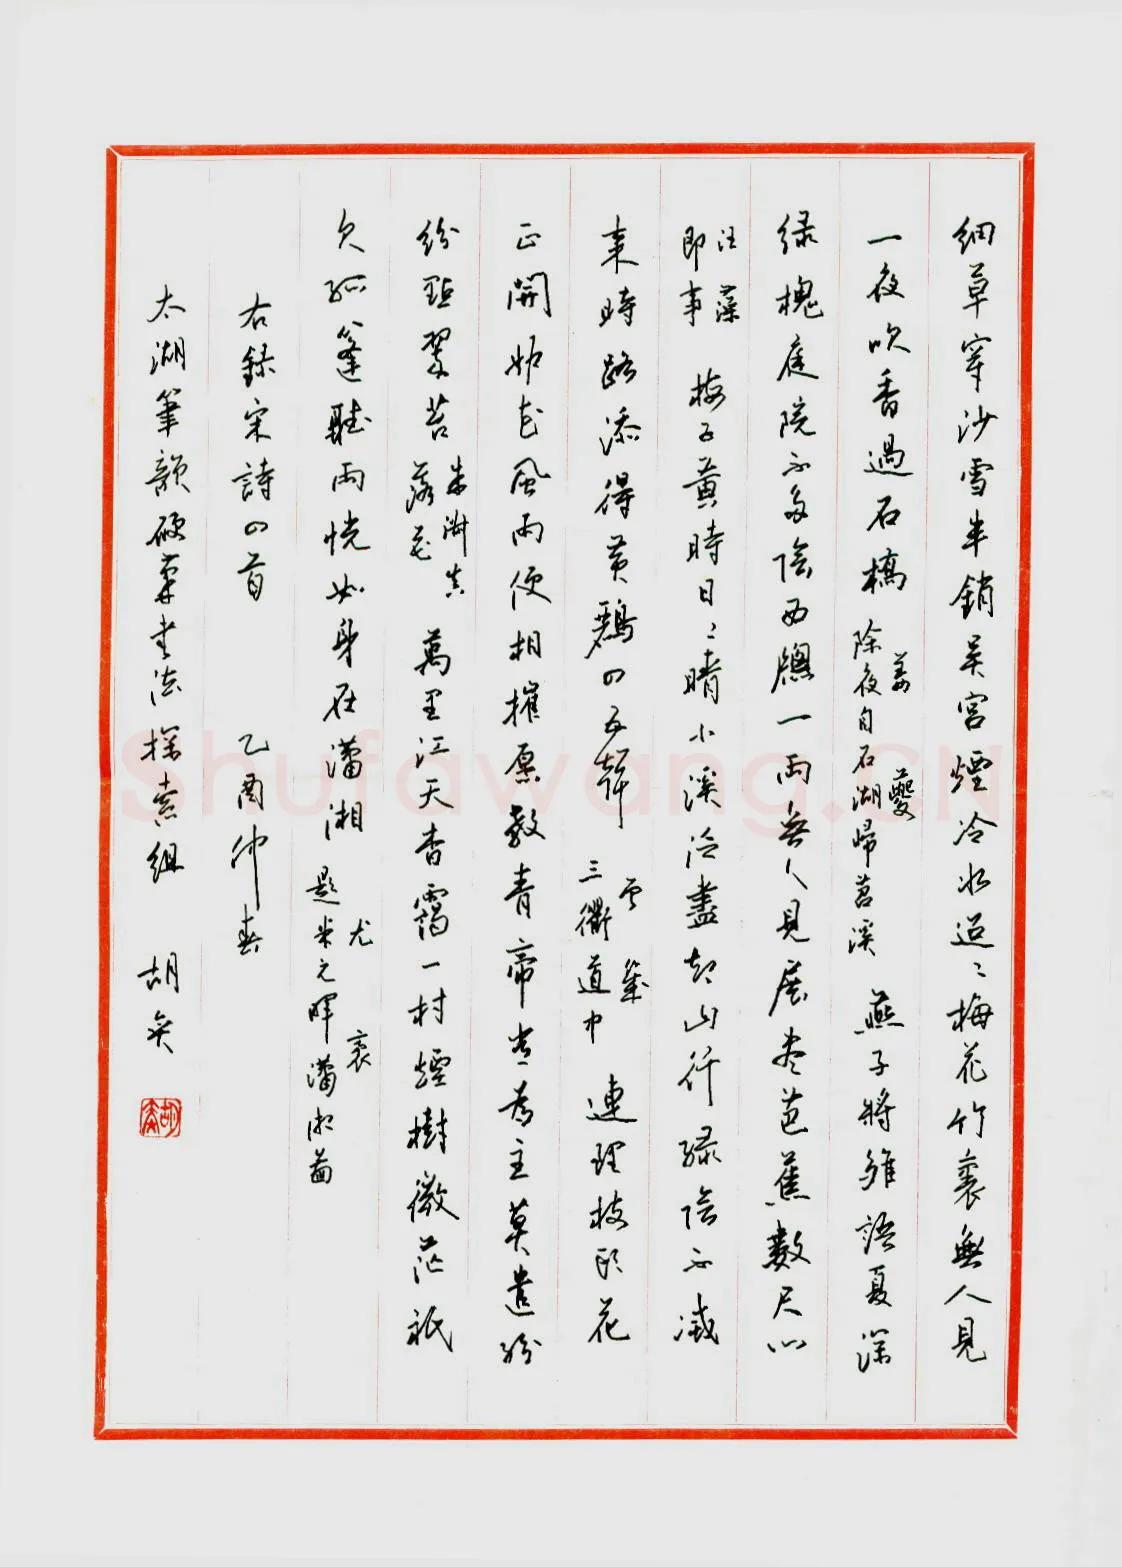 細草穿沙雪半銷吳宮煙冷水迢〻梅花竹裏無人見
一夜吹香過石橋 姜夔 除夜自石湖歸苕溪 燕子將雛語夏深
绿槐庭院不多陰西牕一雨無人見展尽芭蕉數尺心
汪藻 即事 梅子黃時日〻晴小溪泛盡却山行绿陰不減
來時路添得黃鸝四五聲 曾幾 三衢道中 連理枝頭花
正開妒花風雨便相摧願教青帝常為主莫遣紛
紛點翠苔 朱淑真 落花 萬里江天杳靄一村煙樹微茫祇
欠孤篷聽雨恍如身在瀟湘 尤袤 題米元暉瀟湘圖
右錄宋詩四首 乙酉仲春
太湖筆韻硬筆書法探索組 胡奕
胡奕
Shufawang.CN